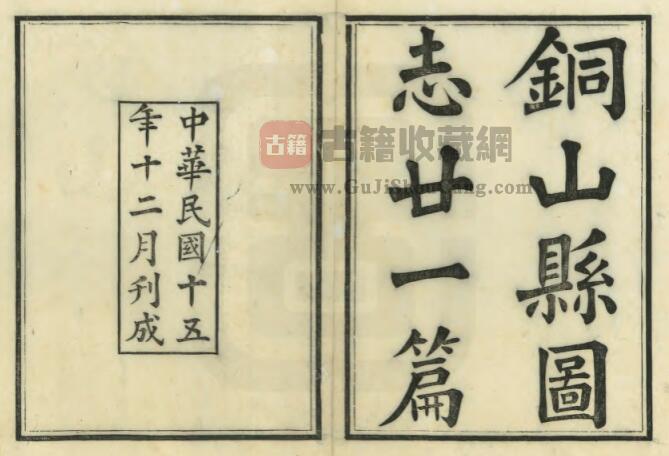 銅山縣圖
志廿一篇
中華民國十五
年十二月刊成
古籍
古籍收藏網
www.GuJiShouCang.com